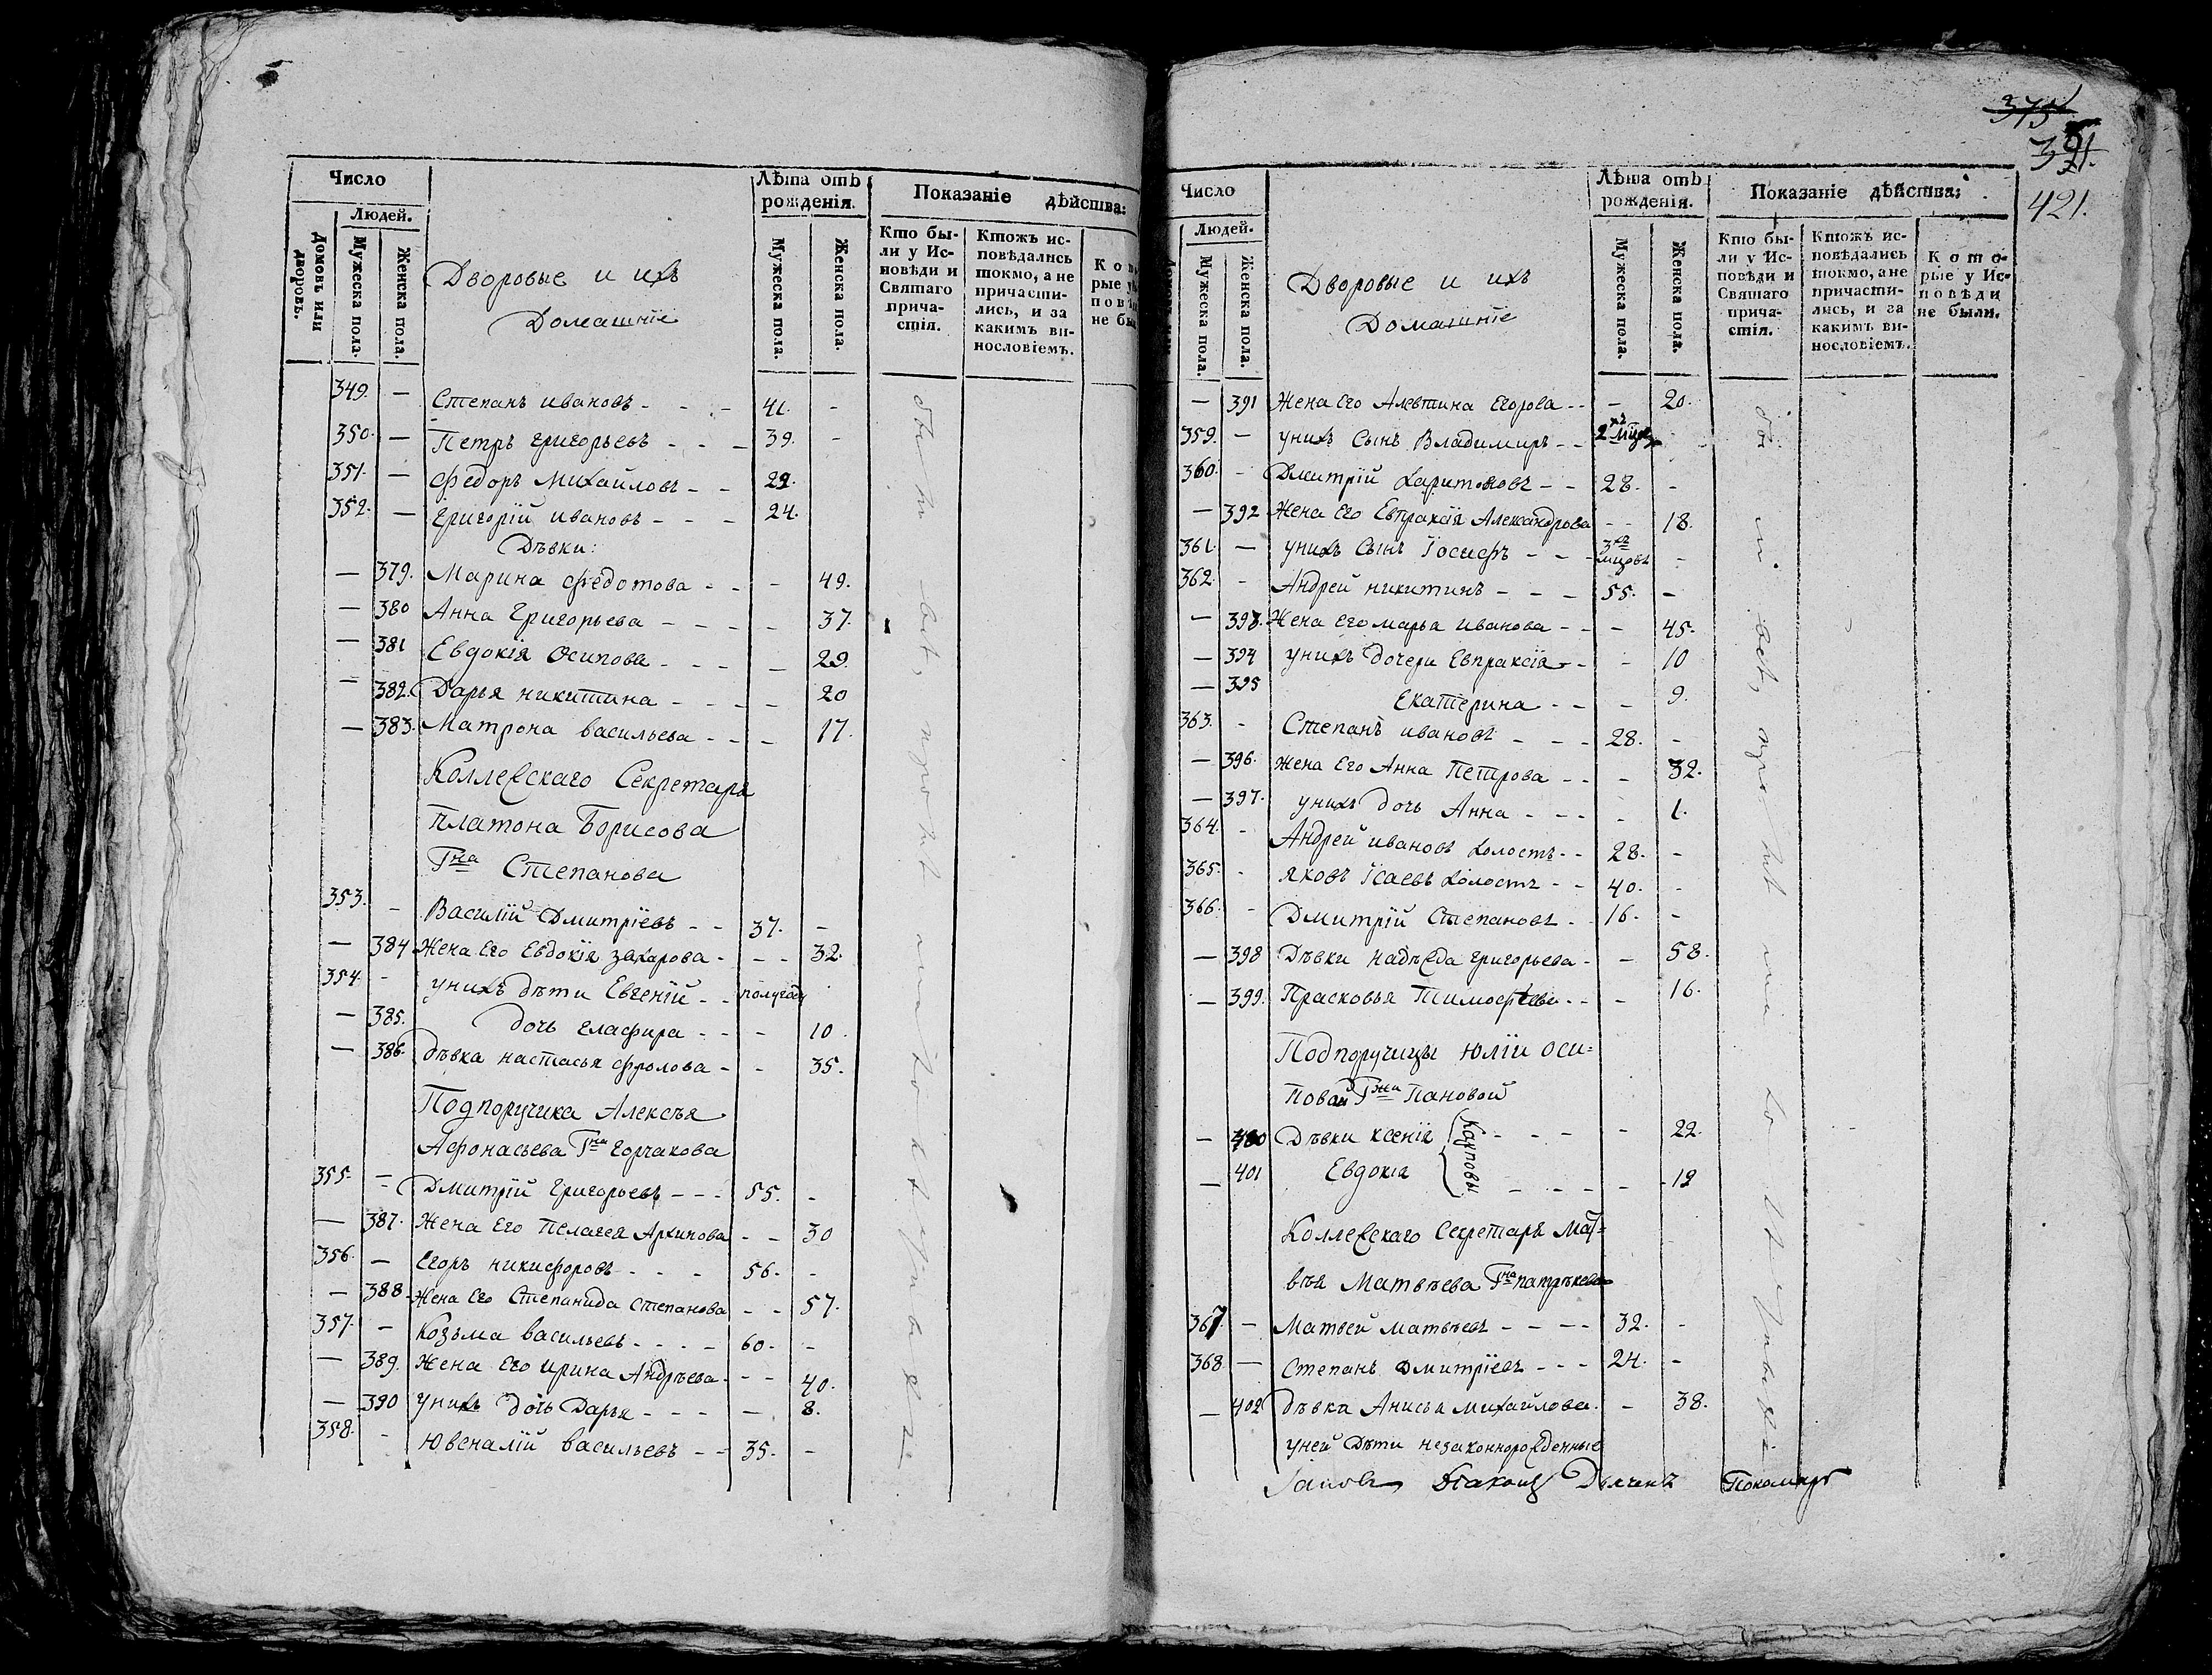 Число
Людей.
Домовъ или дворовъ.
Мужеска пола.
Женска пола.
Дворовые и ихъ
Домашніе
Лѣта отъ рожденія.
Мужеска пола.
Женска пола.
Показаніе дѣйства:
Кто бы-
ли у Ис-
повѣди и
Святаго
прича-
стія.
Ктожъ ис-
повѣдались
токмо, а не
причасти-
лись, и за
какимъ ви-
нословіемъ.
349. — Степанъ Ивановъ - - - 41. -
350. — Петръ Григорьевъ - - - 39. -
351. — Федоръ Михайловъ - - 22.
352. — Григорій Ивановъ - - - 24.
Дѣвки:
— 379. Марина Федотова - - - 49.
— 380 Анна Григорьева - - - - 37.
— 381 Евдокія Осипова - - - - 29.
— 382. Дарья Никитина - - - - 20
— 383. Матрона Васильева - - - 17.
Коллежскаго Секретаря
Платона Борисова
Гна Степанова
353. - Василій Дмитріевъ - - 37. -
— 384 Жена Его Евдокія Захарова - - - 32.
354. - унихъ дѣти Евгеній - - полугоду
— 385. дочь Глафира - - - 10.
— 386. дѣвка Настасья Фролова - - 35.
Подпоручика Алексѣя
Афонасьева Гна Горчакова
355. — Дмитрій Григорьевъ - - - 55. -
— 387. Жена Его Пелагея Архипова - - 30
356. — Егоръ Никифоровъ - - - 56. -
— 388. Жена Его Степанида Степанова - - 57.
357. — Козьма Васильевъ - - - - 60. -
— 389. Жена Его Ирина Андрѣева - - - 40.
— 390 унихъ дочь Дарья - - - — 8.
358. - Ювеналій Васильевъ - - 35. -
375
421.
Число
Людей.
Мужеска пола.
Женска пола.
Дворовые и ихъ
Домашніе
Лѣта отъ рожденія.
Мужеска пола.
Женска пола.
Показаніе дѣйства:
Кто бы-
ли у Ис-
повѣди и
Святаго
прича-
стія.
Ктожъ ис-
повѣдались
токмо, а не
причасти-
лись, и за
какимъ ви-
нословіемъ.
Кото-
рые у Ис-
повѣди
не были.
— 391 Жена Его Алевтина Егорова - - - 20.
359. — унихъ Сынъ Владимиръ - -
360. - Дмитрій Харитоновъ - - 28. -
— 392 Жена Его Евпраксія Александрова - - 18.
361. — унихъ Сынъ Іосифъ - - - 3хъ мцовъ -
362. - Андрей Никитинъ - - - 55. -
— 393. Жена Его Марья Иванова - - - 45.
— 394 унихъ Дочери Евпраксія - - - 10
— 395 Екатерина - - - 9.
363. - Степанъ Ивановъ - - - 28. -
— 396. Жена Его Анна Петрова - - - 32.
— 397. унихъ дочь Анна - - - - 1.
364. - Андрей Ивановъ холостъ - - 28. -
365. - Яковъ Исаевъ холостъ - - 40. -
366. - Дмитрій Степановъ - 16. -
— 398 Дѣвки Надѣжда Григорьева - — 58.
— 399. Прасковья Тимофѣева - - - 16.
Подпоручицы Юліи Оси=
повой Гжи Пановой
— 400 Дѣвки Ксенія - - - - - 22.
— 401 Евдокія - - - - - 12
Карповы
Коллежскаго Секретаря Мат=
вѣя Матвѣева Гна
367. — Матвей Матвѣевъ - - - - 32. -
368. — Степанъ Дмитріевъ - - - 24. -
— 402 Дѣвка Анисья Михайлова - - 38.
уней Дѣти незаконнорожденные
Діаконъ Дьячекъ Пономарь